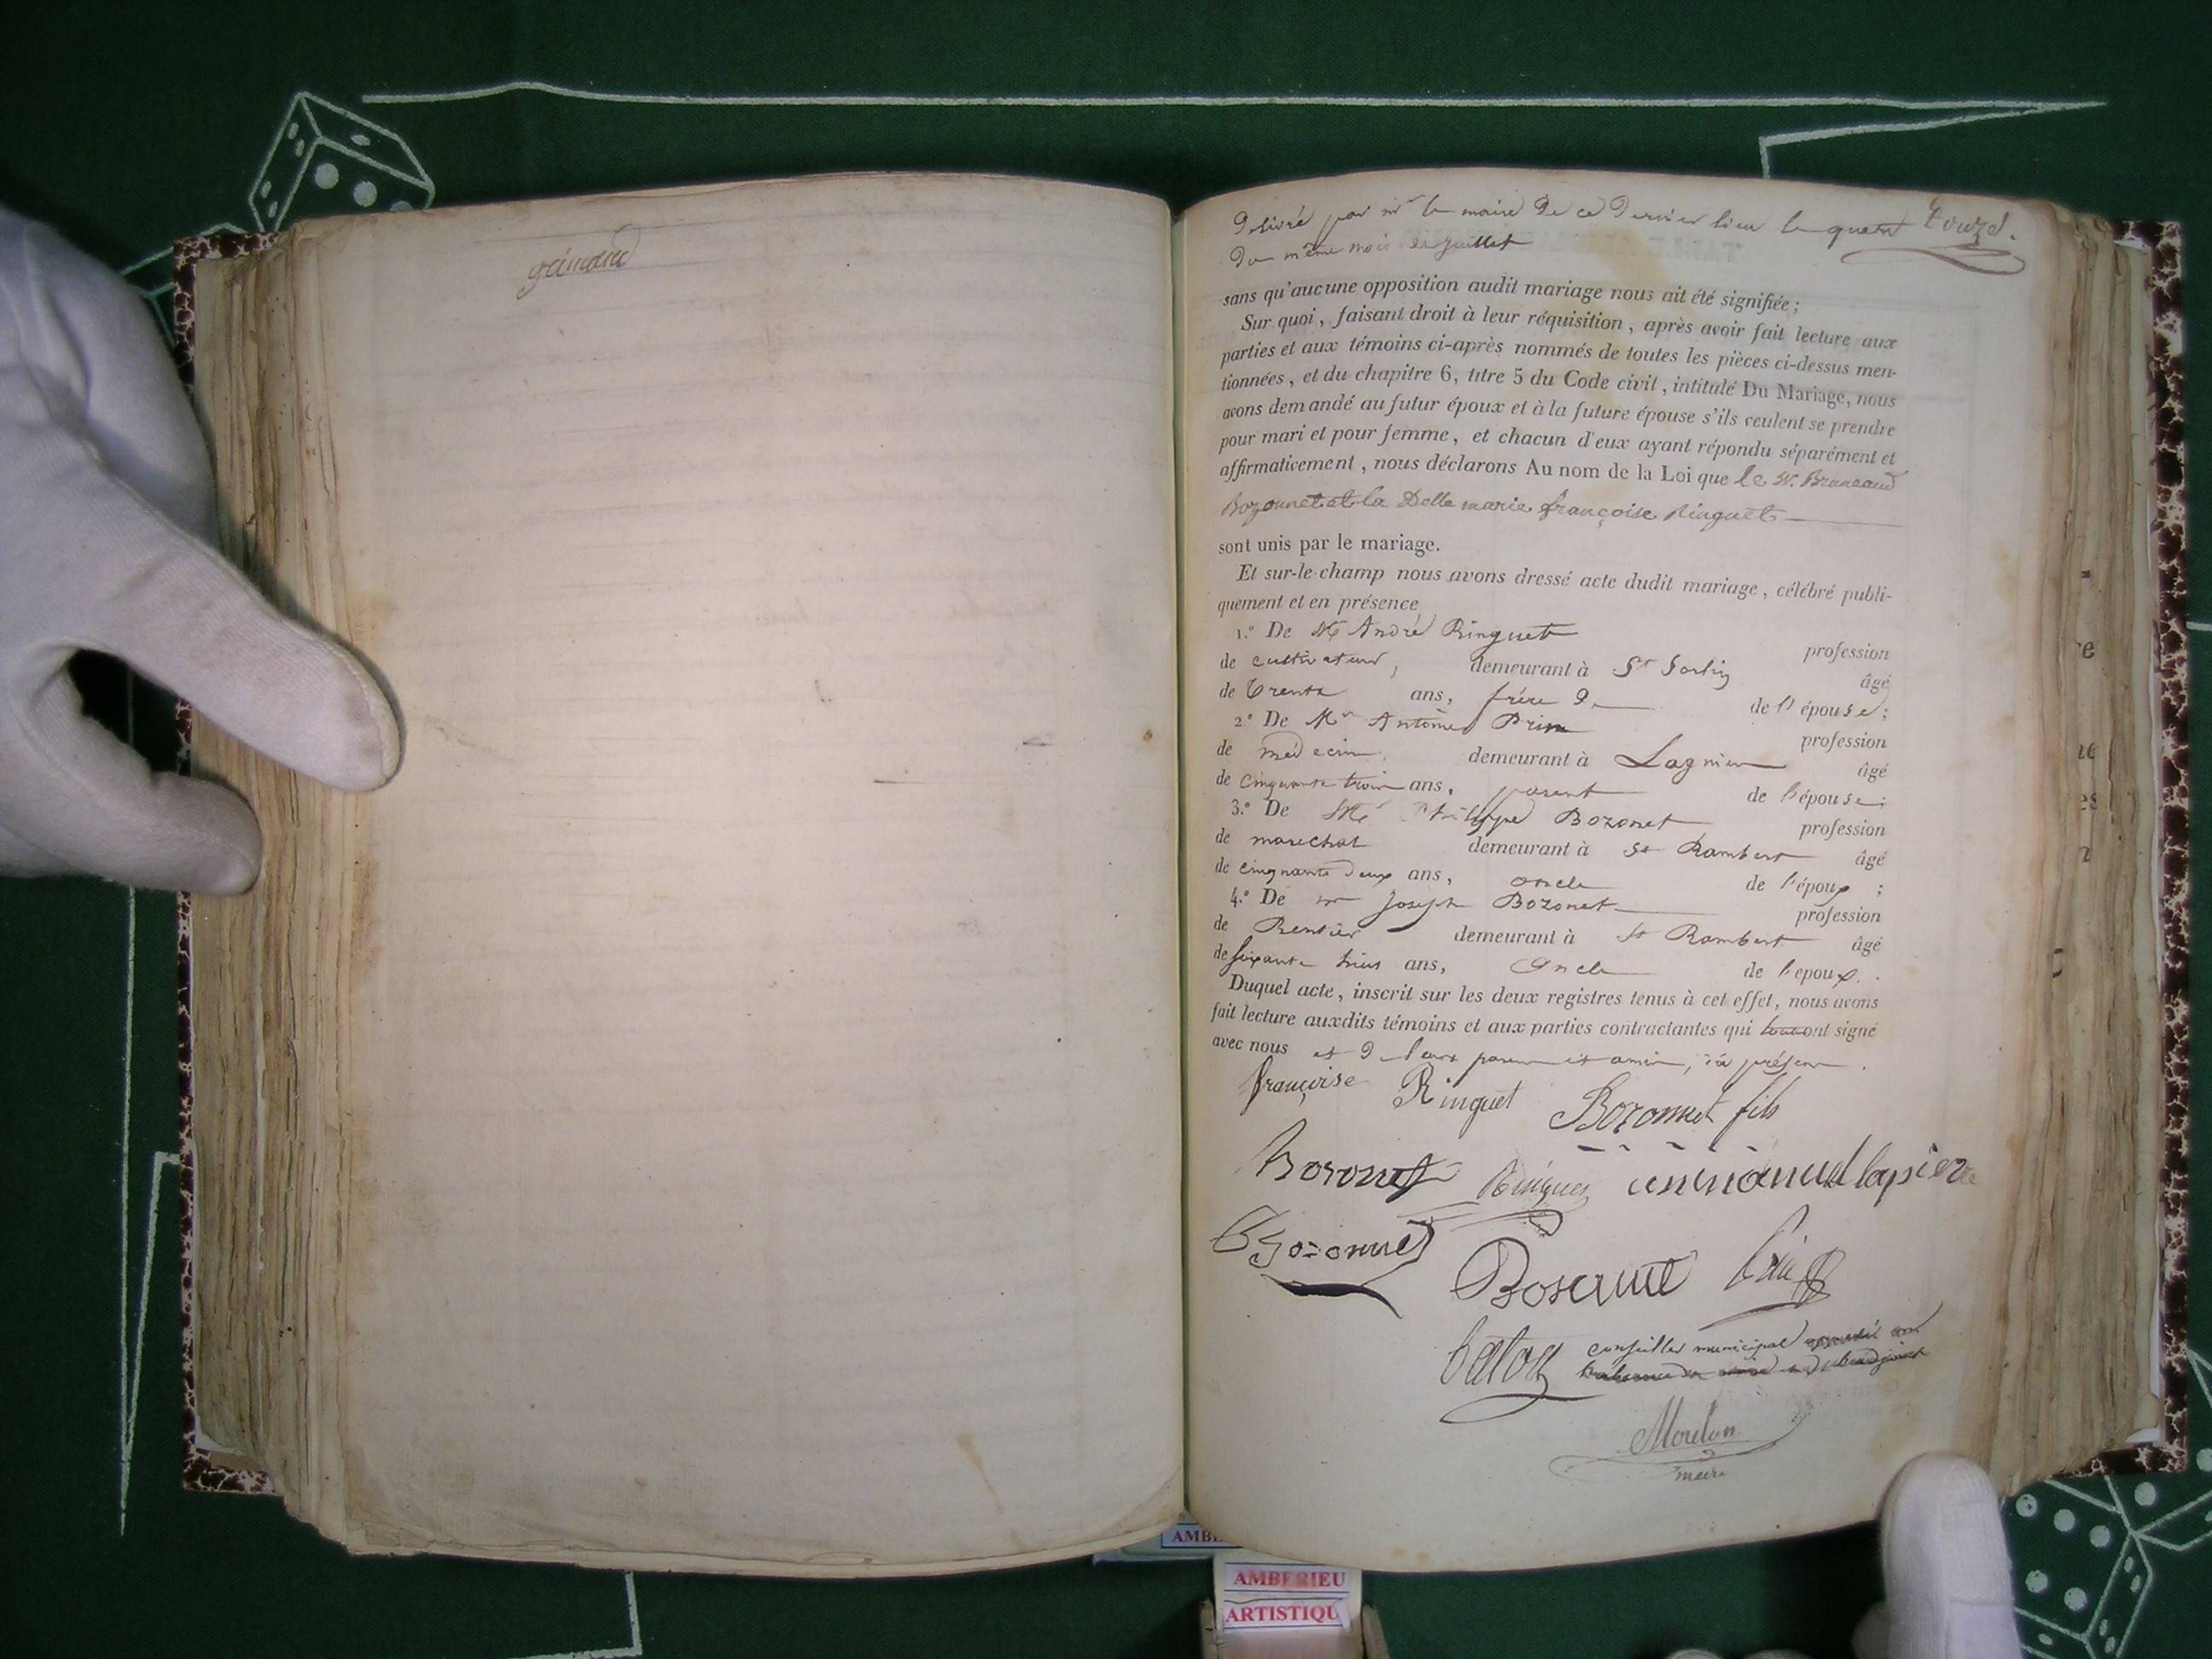 grimand
Delivré par mr le maire de ce dernier lieu le quatorze
du même mois de juillet
sans qu'aucune opposition audit mariage nous ait été signifiée ;
Sur quoi, faisant droit à leur réquisition, après avoir fait lecture aux
parties et aux témoins ci-après nommés de toutes les pièces ci-dessus men-
tionnées, et du chapitre 6, titre 5 du Code civil, intitulé Du Mariage, nous
avons demandé au futur époux et à la future épouse s'ils veulent se prendre
pour mari et pour femme, et chacun d'eux ayant répondu séparément et
affirmativement, nous déclarons Au nom de la Loi que le Sr. Bruneaud
Bozonnet et la Delle marie françoise Ringuet
sont unis par le mariage.
Et sur-le-champ nous avons dressé acte dudit mariage, célébré publi-
quement et en présence
1.º De Mr André Ringuet profession
de cultivateur, demeurant à St Sorlin âgé
de trente ans, frère de l'épouse ;
2.º De Mr Antoine Prin profession
de médecin. demeurant à Lagnieu âgé
de cinquante trois ans, parent de l'épouse ;
3.º De Mr Philippe Bozonet profession
de marechal demeurant à St Rambert âgé
de cinquante deux ans, oncle de l'époux ;
4.º De mr Joseph Bozonet profession
de Rentier demeurant à St Rambert âgé
de soixante trois ans, oncle de l'epoux.
Duquel acte, inscrit sur les deux registres tenus à cet effet, nous avons
fait lecture auxdits témoins et aux parties contractantes qui tous ont signé
avec nous et de leurs parens et amis, ici présens.
françoise Ringuet Bozonnet fils
Bozonet Ringuet emmanuel lapierre
Bozonnet
Bosonnet Prin
conseiller municipal
Moulon
maire
AMBERIEU
ARTISTIQU